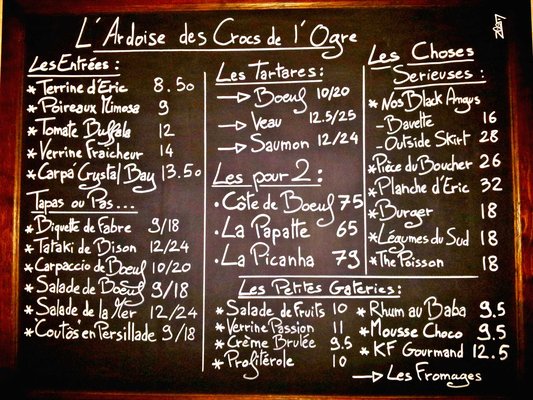 L'Ardoise des Crocs de l'Ogre
Les Entrées :
* Terrine d'Eric 8.50
* Poireaux Mimosa 9
* Tomate Buffala 12
* Verrine Fraicheur 14
* Carpa Crystal Bay 13.50
Tapas ou Pas...
* Biquette de Fabre 9/18
* Tataki de Bison 12/24
* Carpaccio de Boeuf 10/20
* Salade de Boeuf 9/18
* Salade de la Mer 12/24
* Coutos en Persillade 9/18
Les Tartares :
→ Boeuf 10/20
→ Veau 12.5/25
→ Saumon 12/24
Les pour 2 :
• Côte de Boeuf 75
• La Papatte 65
• La Picanha 79
Les Choses
Serieuses :
* Nos Black Angus
- Bavette 16
- Outside Skirt 28
* Pièce du Boucher 26
* Planche d'Eric 32
* Burger 18
* Légumes du Sud 18
* The Poisson 18
Les Petites Gateries :
* Salade de Fruits 10
* Verrine Passion 11
* Crème Brulée 9.5
* Profiterole 10
* Rhum au Baba 9.5
* Mousse Choco 9.5
* KF Gourmand 12.5
→ Les Fromages